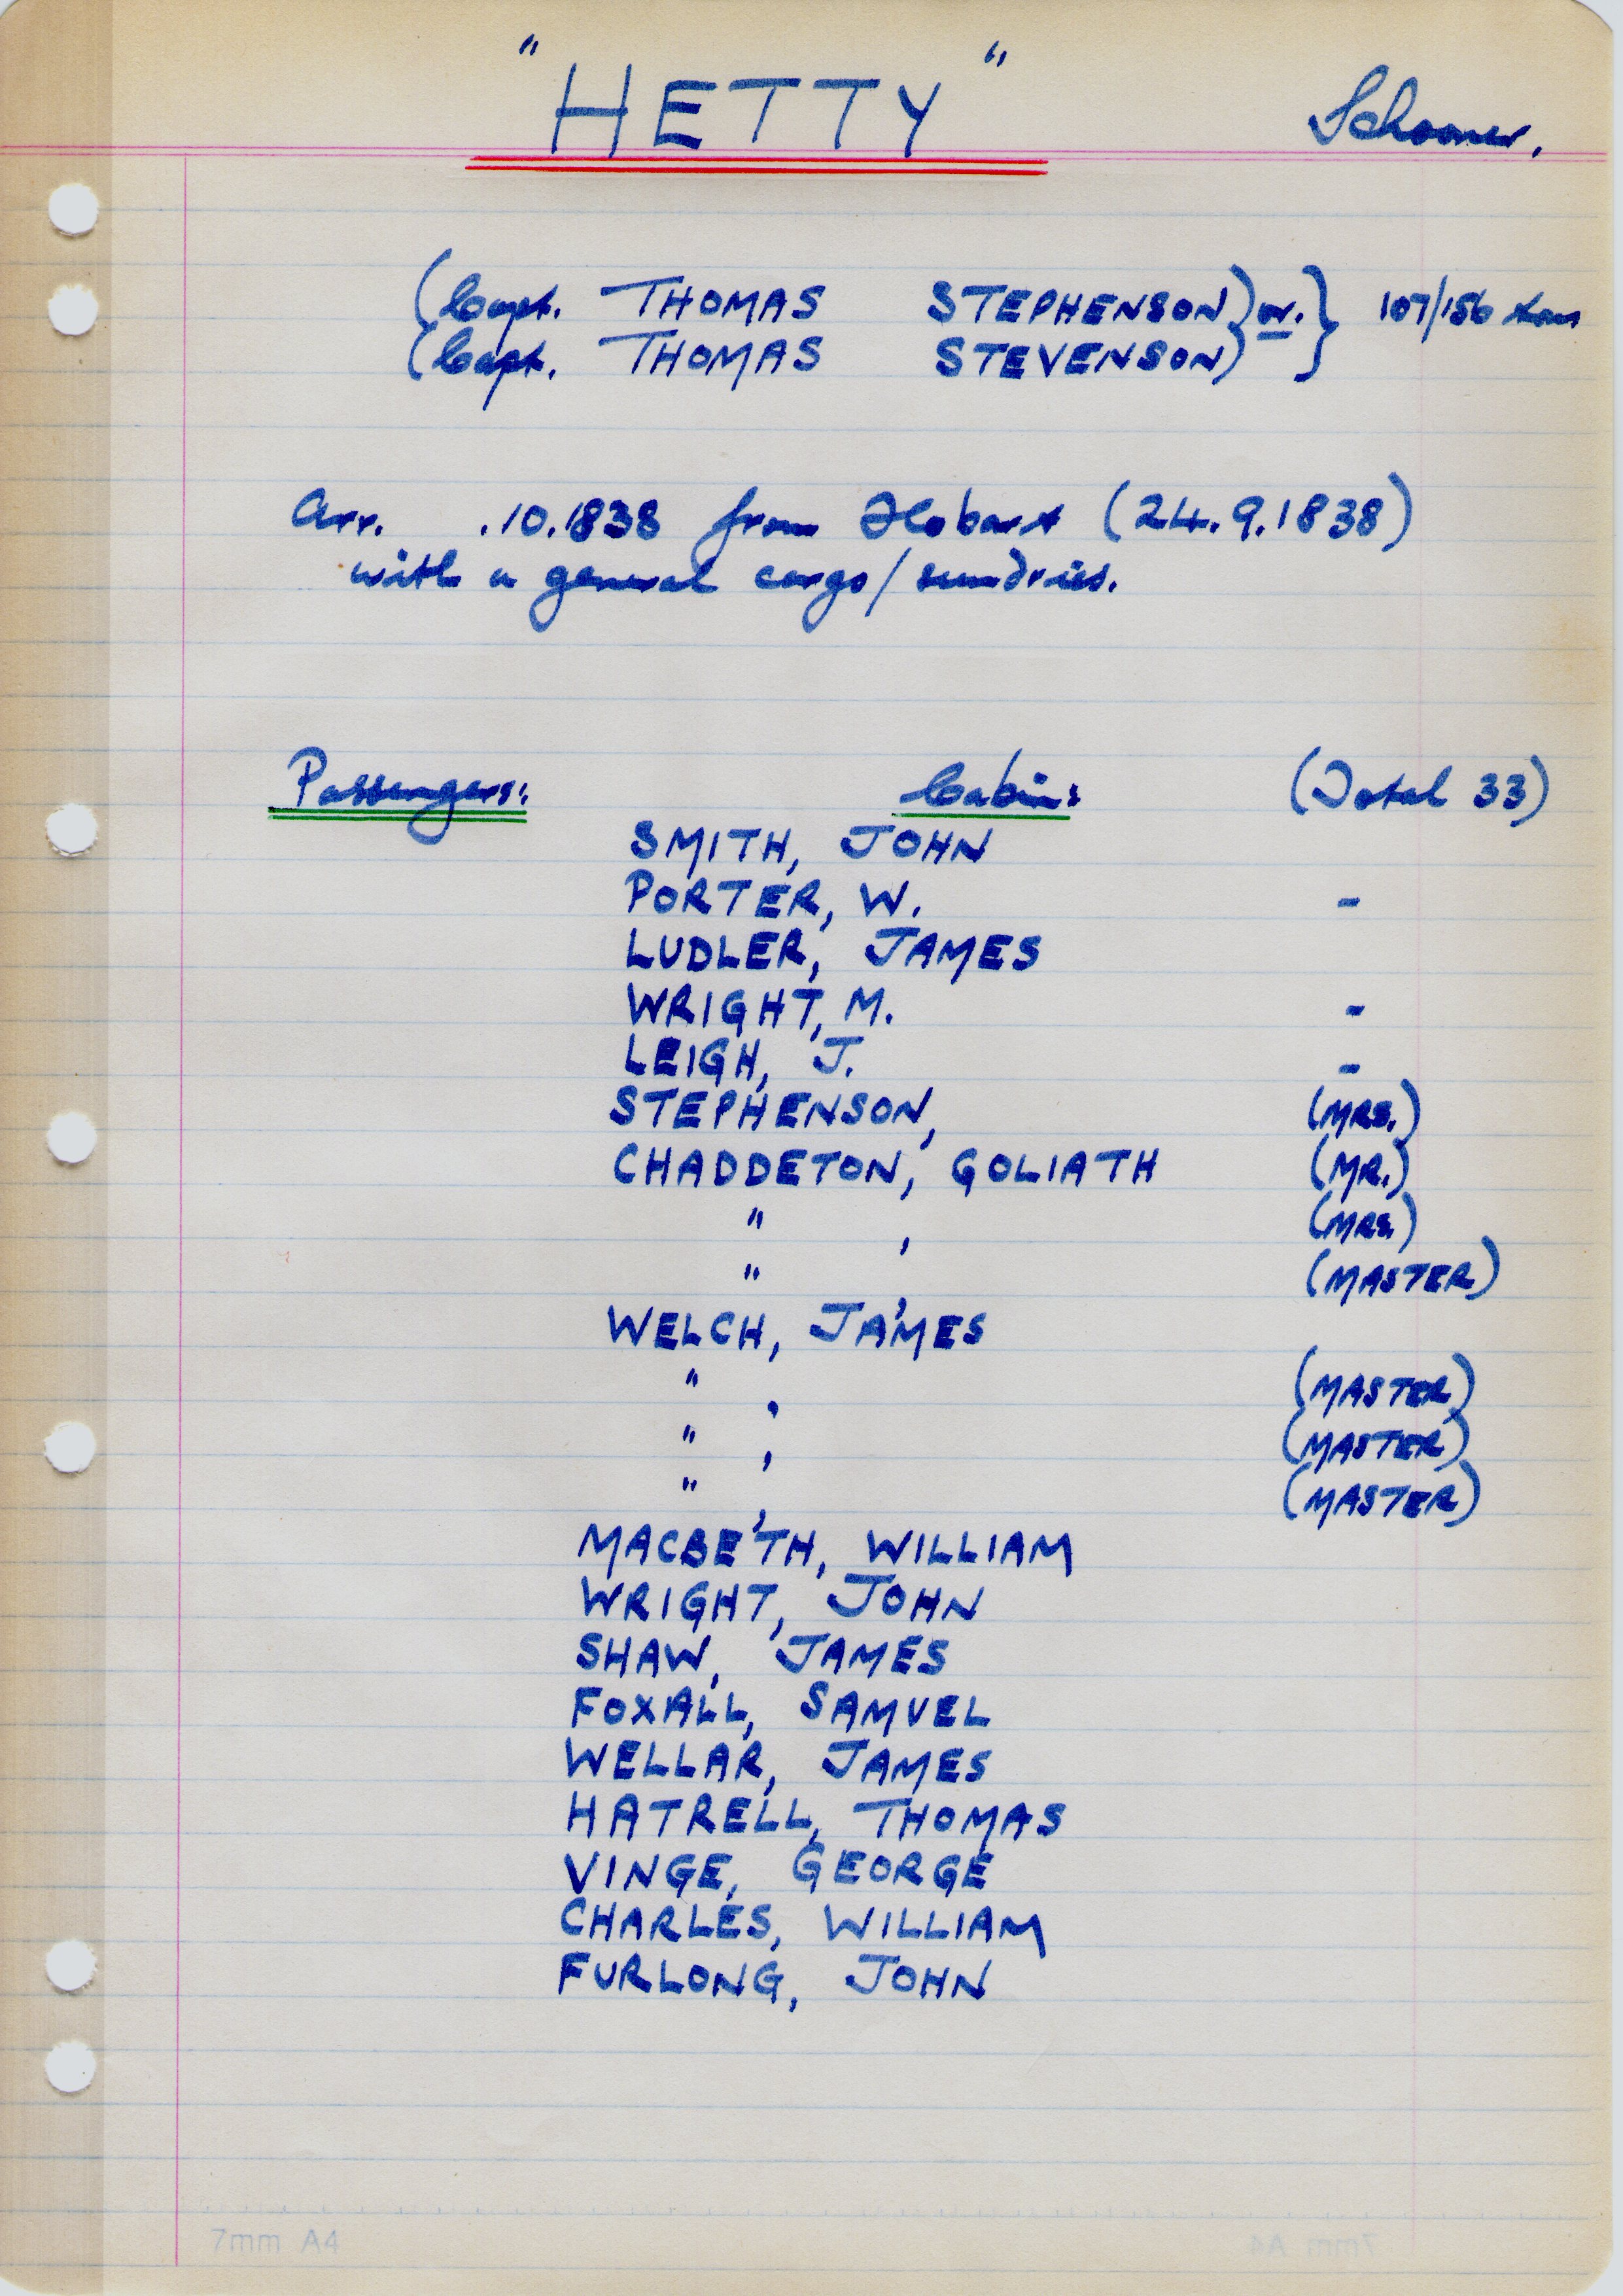 "HETTY" Schooner.
(Capt. THOMAS STEPHENSON) or. } 107/156 tons
(Capt. THOMAS STEVENSON)
Arr. .10.1838 from Hobart (24.9.1838)
with a general cargo/sundries.
Passengers: Cabin: (Total 33)
SMITH, JOHN
PORTER, W. -
LUDLER, JAMES
WRIGHT, M. -
LEIGH, J. -
STEPHENSON, (MRS.)
CHADDETON, GOLIATH (MR.)
" , (MRS.)
" , (MASTER)
WELCH, JAMES
" , (MASTER)
" , (MASTER)
" , (MASTER)
MACBETH, WILLIAM
WRIGHT, JOHN
SHAW, JAMES
FOXALL, SAMUEL
WELLAR, JAMES
HATRELL, THOMAS
VINGE, GEORGE
CHARLES, WILLIAM
FURLONG, JOHN
7mm A4